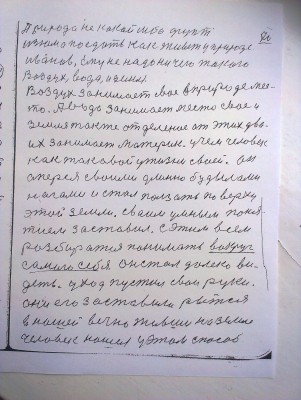 Природа не какой либо фрукт
Иванов, ему не надо ничего такого
Воздух, вода, и земля.
Воздух занимает свое в природе мес-
то. А вода занимает место свое и
земля также отделено от этих дву-
их занимает материк. Чем человек
как таковой у жизни своей. Он
оперся своими длинно будылами
ногами и стал ползать по верху
этой земли. Своим умным поня-
тием заставил. С этим всем
разбираться понимать вокруг
самого себя. Он стал далеко ви-
деть. У ход пустил свои руки.
Они его заставили рыться
в нашей вечно живыи на земле
человек нашел у этом способ